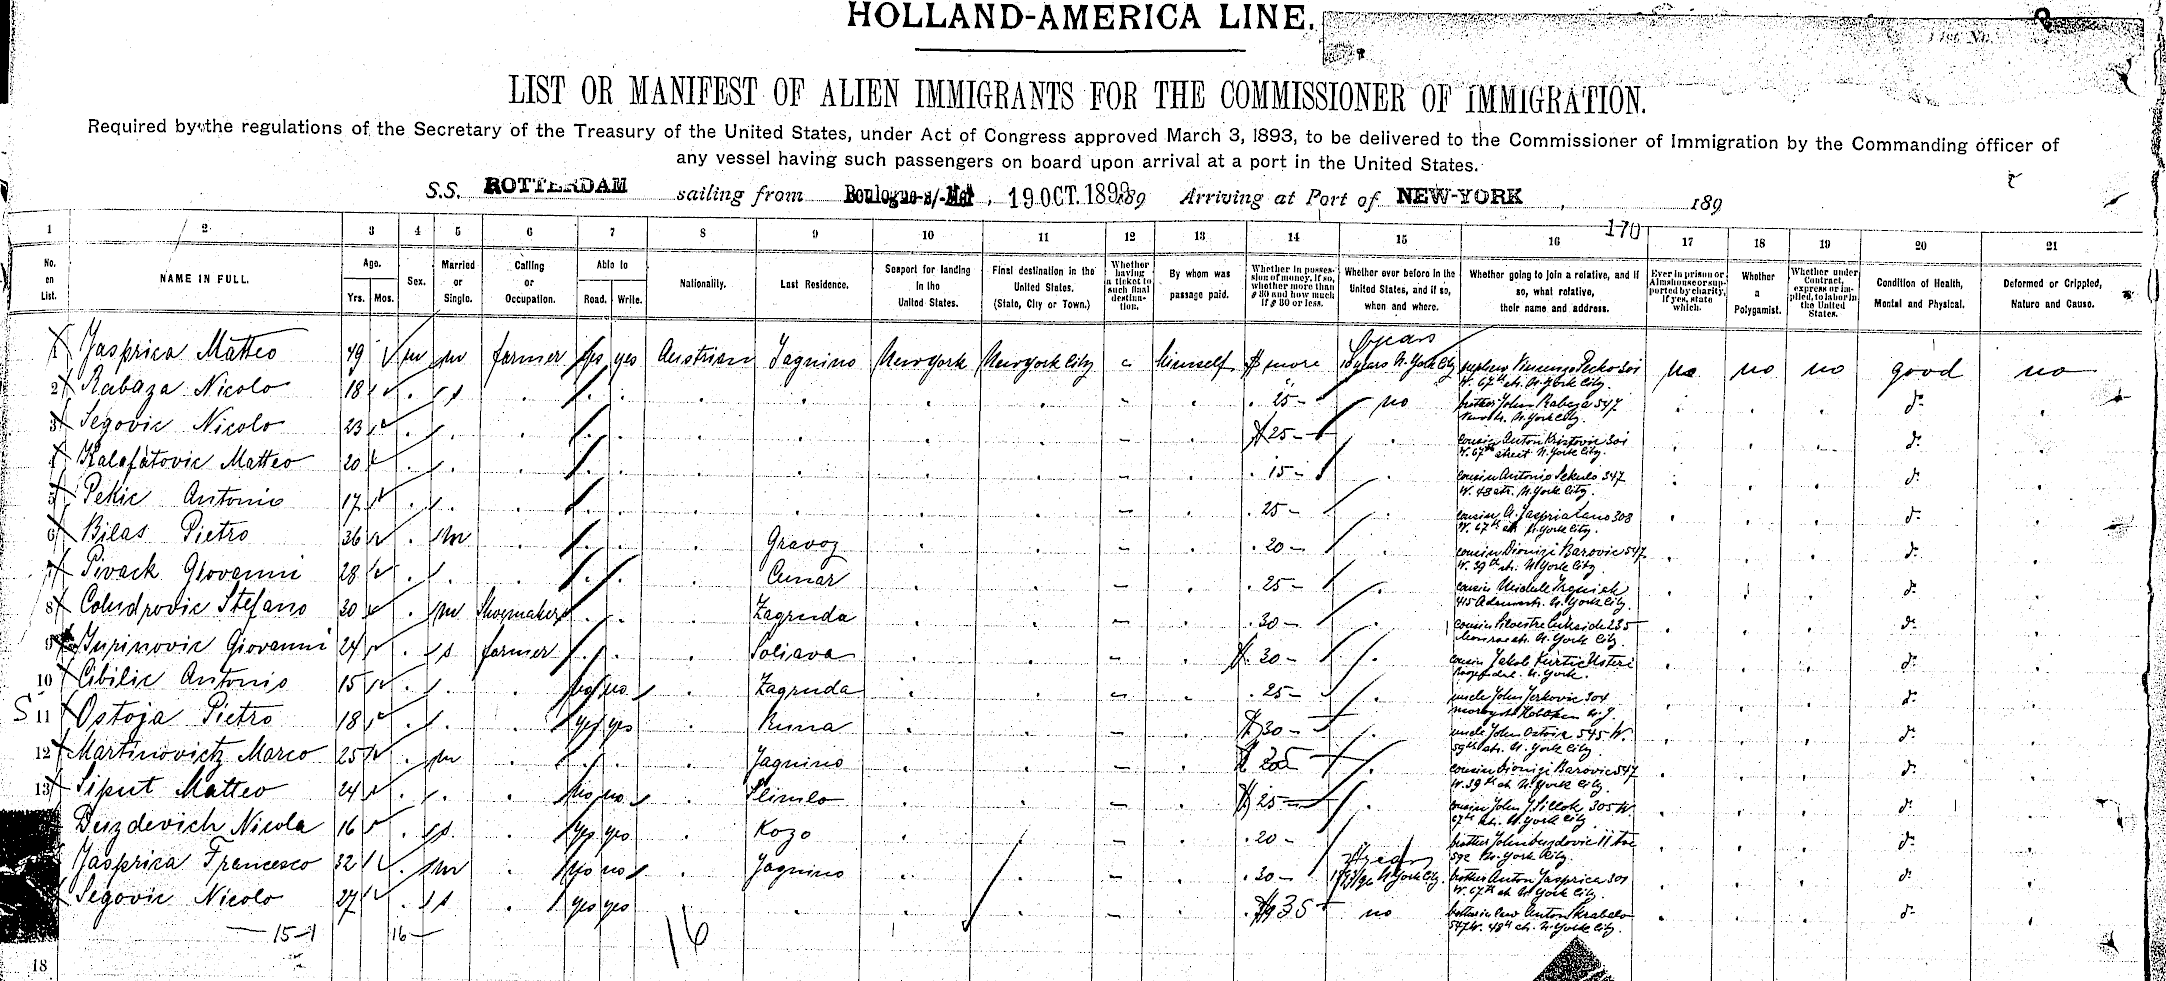 HOLLAND-AMERICA LINE.
List No.
LIST OR MANIFEST OF ALIEN IMMIGRANTS FOR THE COMMISSIONER OF IMMIGRATION.
Required by the regulations of the Secretary of the Treasury of the United States, under Act of Congress approved March 3, 1893, to be delivered to the Commissioner of Immigration by the Commanding officer of
any vessel having such passengers on board upon arrival at a port in the United States.
S.S. ROTTERDAM sailing from Boulogne-s/-Mer, 19 OCT. 1899 189 Arriving at Port of NEW-YORK, 189
170
1 2 3 4 5 6 7 8 9 10 11 12 13 14 15 16 17 18 19 20 21
No. on List. NAME IN FULL. Age. Yrs. Mos. Sex. Married or Single. Calling or Occupation. Able to Read. Write. Nationality. Last Residence. Seaport for landing in the United States. Final destination in the United States. (State, City or Town.) Whether having a ticket to such final destination. By whom was passage paid. Whether in possession of money, if so, whether more than $ 30 and how much if $ 30 or less. Whether ever before in the United States, and if so, when and where. Whether going to join a relative, and if so, what relative, their name and address. Ever in prison or Almshouse or supported by charity, if yes, state which. Whether a Polygamist. Whether under Contract, express or implied, to labor in the United States. Condition of Health, Mental and Physical. Deformed or Crippled, Nature and Cause.
1 Jasprica Matteo 49 m m farmer yes yes Austrian Jagnino New York New York City himself $ more years N. York City nephew Vincenzo 301 W. 67th str. N. York City. no no no good no
2 Rabaza Nicolo 18 . s . . . . . . . – . . 25 – no brother John Rabaza 547 N. York City. . . . do .
3 Segovic Nicolo 23 . . . . . . . . . – . 25 – . cousin Anton Kristovic 301 W. 67th street N. York City. . . . do .
4 Kalafatovic Matteo 20 . . . . . . . . . – . . 15 – . cousin Antonio Sekulo 347 W. 48 str. N. York City. . . . do .
5 Pekic Antonio 17 . . . . . . . . . – . 25 – . cousin A. 308 W. 67th str. N. York City. . . . do .
6 Bilas Pietro 36 . m . . . . Gravoz . . – . . 20 – . cousin Dionizi Barovic 547 W. 39th str. N. York City . . . do .
7 Pivack Giovanni 28 . . . . . . Cunar . . – . . 25 – . cousin Michele 415 N. York City. . . . do .
8 Coludrovic Stefano 30 . m Shoemaker . . . Zagruda . . – . . 30 – . cousin Silvestre 235 Monroe str. N. York City . . . do .
9 Jurinovic Giovanni 24 . s farmer . . . Soliava . . – . 30 – . cousin Jakob Kurtic N. York. . . . do .
10 Cibilic Antonio 15 . . . no no . Zagruda . . – . . 25 – . uncle John Jerkovic 304 Hoboken N. J. . . . do .
S 11 Ostoja Pietro 18 . . . yes yes . Kuna . . – . 30 – . uncle John Ostoja 545 W. 59th str. N. York City . . . do .
12 Martinovictz Marco 25 . m . . . . Jagnino . . – . . cousin Dionizi Barovic 547 W. 39th str. N. York City. . . . do .
13 Siput Matteo 24 . . . no no . Slimlo . . – . 25 – . cousin John J. 305 W. 67th str. N. York City . . . do .
Duzdevich Nicola 16 . s . yes yes . Kozo . . – . . 20 – . brother John 11 Ave 592 N. York City. . . . do .
Jasprica Francesco 32 . m . no no . Jagnino . . – . . 30 – years N. York City. brother Anton Jasprica 301 W. 67th str. N. York City . . . do .
Segovic Nicolo 27 . s . yes yes . . . . – . . 35 no brother in law Anton Skrabalo 547 W. 48th str. N. York City. . . . do .
15–1 16– 16
18